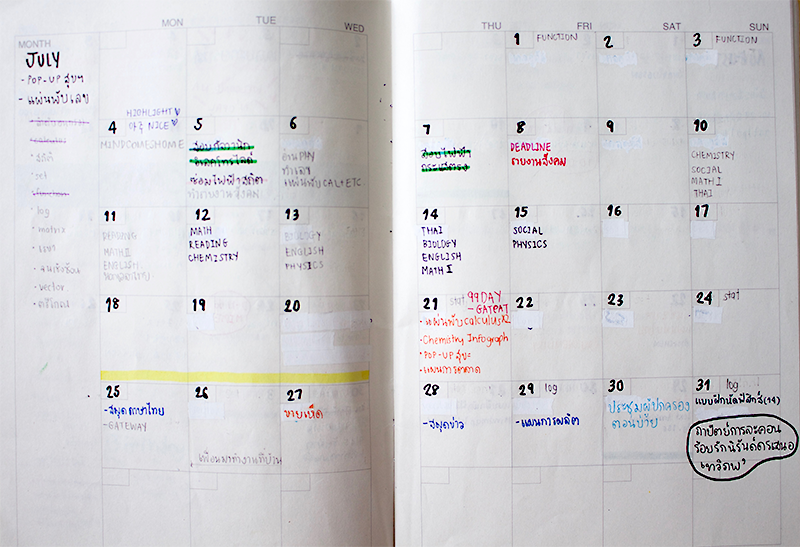 MON
TUE
WED
THU
FRI
SAT
SUN
MONTH
JULY
- POP-UP สุขฯ
- แผ่นพับเลข
• สถิติ
• log
• matrix
• เชิงซ้อน
• vector
• ตรีโกณ
1 FUNCTION
2
3 FUNCTION
4
HIGHLIGHT
NICE
MINDCOMESHOME
5
ซ่อมไฟฟ้าสถิต
ทำรายงานสังคม
6
อ่าน PHY
ทำเลข
แผ่นพับ CAL+ETC.
7
สอบไฟฟ้า
กระแสตรง
8
DEADLINE
รายงานสังคม
9
10
CHEMISTRY
SOCIAL
MATH I
THAI
11
READING
MATH II
ENGLISH
12
MATH
READING
CHEMISTRY
13
BIOLOGY
ENGLISH
PHYSICS
14
THAI
BIOLOGY
ENGLISH
MATH I
15
SOCIAL
PHYSICS
16
17
18
19
20
21 stat 99 DAY
- GATPAT
• แผ่นพับ calculus x2
• Chemistry Infograph
• POP-UP สุขะ
• แผนการตลาด
22
23
24 stat
25
- สมุดภาษาไทย
- GATEWAY
26
เพื่อนมาทำงานที่บ้าน
27
ขายเห็ด
28
- สมุดข่าว
29 log
- แผนการผลิต
30
ประชุมผู้ปกครอง
ตอนบ่าย
31 log
แบบฝึกหัดฟิสิกส์ (14)
ถาปัตย์การละคอน
ร้อยรักนิรันด์ดรเสนอ
'ทวิภพ'